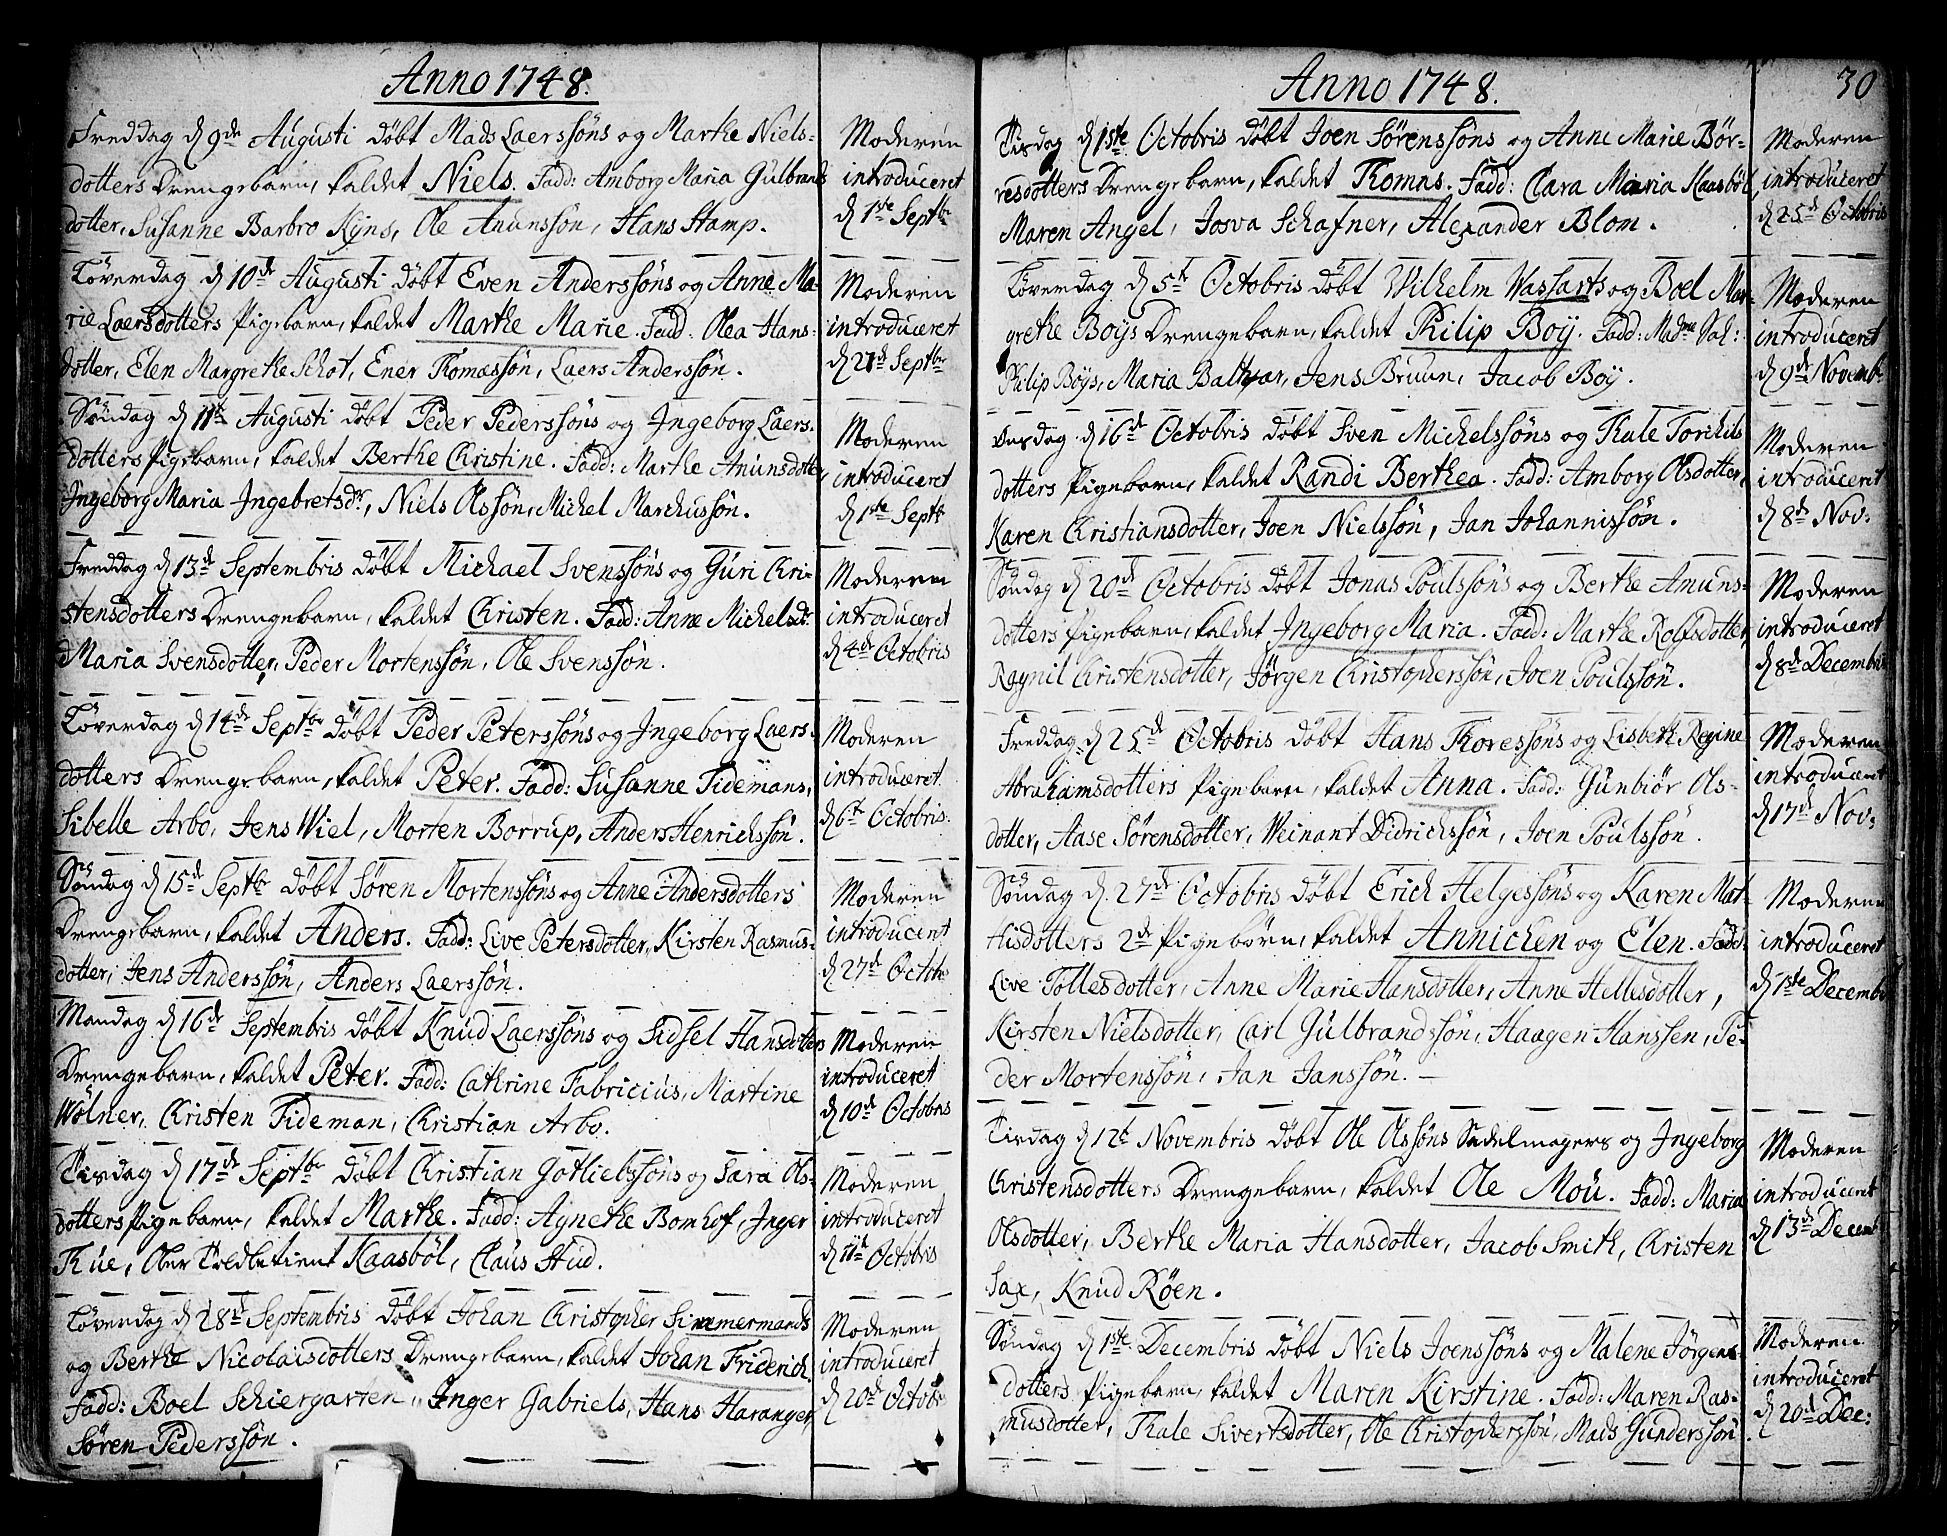 Anno 1748.
Freddag d 9de Augusti döbt Mads Laerssöns og Marthe Niels-
dotters Drengebarn, kaldet Niels. Fadd: Amborg Maria Gulbrands
dotter, Susanne Barbro Kyns, Ole Amunssön, Hans Hamp.
Moderen
introduceret
d 1ste Septbr
Löverdag d 10de Augusti döbt Even Anderssöns og Anne Ma-
rie Laersdotters Pigebarn, kaldet Marthe Marie. Fadd. Olea Hans-
dotter, Elen Margrethe Schot, Ener Thomassön, Laers Anderssön.
Moderen
introduceret
d 21de Septbr
Söndag d 11te Augusti döbt Peder Pederssöns og Ingeborg Laers-
dotters Pigebarn, kaldet Berthe Christine. Fadd: Marthe Amunsdotter,
Ingeborg Maria Ingebretsdr, Niels Olssön, Michel Marchussön.
Moderen
introduceret
d 1ste Septb
Freddag d 13de Septembris döbt Michael Svenssöns og Guri Chri-
stensdotters Drengebarn, kaldet Christen. Fadd: Anne Michelsdr
Maria Svensdotter, Peder Mortenssön, Ole Svenssön.
Moderen
introduceret
d 4de Octobris
Löverdag d 14de Septbr döbt Peder Peterssöns og Ingeborg Laers-
dotters Drengebarn, kaldet Peter. Fadd: Susanne Tidemans,
Sibelle Arbo, Jens Wiel, Morten Borrup, Anders Henrichssön.
Moderen
introduceret
d 6te Octobris.
Söndag d 15de Septbr döbt Sören Mortenssöns og Anne Andersdotters
Drengebarn, kaldet Anders. Fadd: Live Petersdotter, Kirsten Rasmus-
dotter, Jens Anderssön, Anders Laerssön.
Moderen
introduceret
d 27de Octob
Mandag d 16de Septembris döbt Knud Laerssöns og Sidsel Hansdotters
Drengebarn, kaldet Peter. Fadd: Cathrine Fabricius, Martine
Wölner, Christen Tideman, Christian Arbo.
Moderen
introduceret
d 10de Octobris
Tisdag d 17de Septbr döbt Christian Gotliebssöns og Sara Ols-
dotters Pigebarn, kaldet Marthe. Fadd: Agnethe Bomhof, Inger
Thue, Over Toldbetient Kaasböl, Claus Stud.
Moderen
introduceret
d 11te Octobris
Löverdag d 28de Septembris döbt Johan Christopher Simmermands
og Berthe Nicolaisdotters Drengebarn, kaldet Johan Friderich.
Fadd: Boel Schiergarten, Inger Gabriels, Hans Haranger,
Sören Pederssön.
Moderen
introduceret
d 20de Octobr
Anno 1748.
30
Tisdag d 1ste Octobris döbt Joen Sörenssöns og Anne Marie Bör-
resdotters Drengebarn, kaldet Thomas. Fadd: Clara Maria Kaasböl,
Maren Angel, Josva Schafner, Alexander Blom.
Moderen
introduceret
d 25de Octobris
Löverdag d 5te Octobris döbt Wilhelm Wassarts og Boel Mar-
grethe Boys Drengebarn, kaldet Philip Boy. Fadd: Madme Sal:
Philip Böys, Maria Baltzar, Jens Bruun, Jacob Boy.
Moderen
introduceret
d 9de Novemb
Onsdag d 16de Octobris döbt Sven Michelssöns og Thale Torchils
dotters Pigebarn, kaldet Randi Berthea. Fadd: Amborg Olsdotter,
Karen Christiansdotter, Joen Nielssön, Jan Johannissön.
Moderen
introduceret
d 8de Nov:
Söndag d 20de Octobris döbt Jonas Poulssöns og Berthe Amuns-
dotters Pigebarn, kaldet Ingeborg Maria. Fadd: Marthe Rolfsdotter,
Raynil Christensdotter, Jörgen Christopherssön, Joen Poulssön.
Moderen
introduceret
d 8de Decembris
Freddag d 25de Octobris döbt Hans Thoressöns og Lisbeth Regine
Abrahamsdotters Pigebarn, kaldet Anna. Fadd: Gunbiör Ols-
dotter, Aase Sörensdotter, Weinant Didrichssön, Joen Poulssön.
Moderen
introduceret
d 17de Nov:
Söndag d. 27de Octobris döbt Erich Helgessöns og Karen Mat
thisdotters 2de Pigebörn, kaldet Annichen og Elen. Fadd:
Live Tollesdotter, Anne Marie Hansdotter, Anne Hellesdotter,
Kirsten Nielsdotter, Carl Gulbrandssön, Haagen Hanssen, Pe-
der Mortenssön, Jan Janssön.
Moderen
introduceret
d 1ste Decembr
Tisdag d 12te Novembris döbt Ole Olssöns Sadelmagers og Ingeborg
Christensdotters Drengebarn, kaldet Ole Mou. Fadd: Maria
Olsdotter, Berthe Maria Hansdotter, Jacob Smith, Christen
Sax, Knud Röen.
Moderen
introduceret
d 13de Decemb
Söndag d 1ste Decembris döbt Niels Joenssöns og Malene Jörgens-
dotters Pigebarn, kaldet Maren Kirstine. Fadd: Maren Ras-
musdotter, Thale Sivertsdotter, Ole Christopherssön, Mads Gunderssön.
Moderen
introduceret
d 20de Dec: